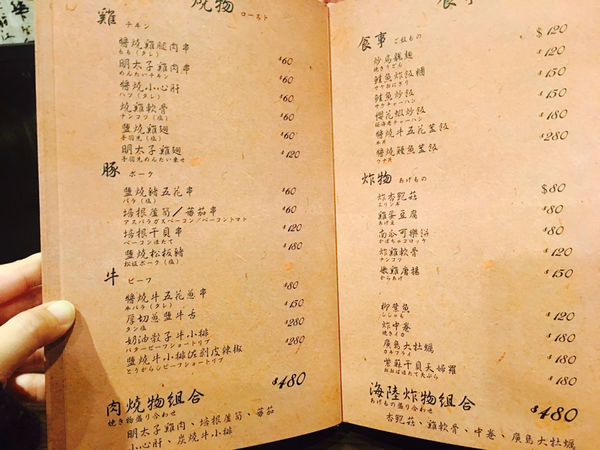 燒物
ロースト
雞
チキン
醬燒雞腿肉串
もも(タレ)
$60
明太子雞肉串
めんたいチキン
$60
醬燒小心肝
ハツ(タレ)
$60
燒雞軟骨
ナンコツ(塩)
$60
鹽燒雞翅
手羽先(塩)
$60
明太子雞翅
手羽先めんたい乗せ
$120
豚 ポーク
鹽燒豬五花串
バラ(塩)
$60
培根蘆筍/蕃茄串
アスパラガスベーコン/ベーコントマト
$60
培根干貝串
ベーコンほたて
$120
鹽燒松板豬
松坂ポーク(塩)
$180
牛 ビーフ
醬燒牛五花蔥串
牛バラ(タレ)
$80
厚切蔥鹽牛舌
タン塩
$150
奶油骰子牛小排
バタービーフショートリブ
$280
鹽燒牛小排佐剝皮辣椒
とうがらしビーフショートリブ
$280
肉燒物組合
焼き物盛り合わせ
$480
明太子雞肉、培根蘆筍、蕃茄
小心肝、炭燒牛小排
食事
食事 ごはんもの
炒烏龍麵
焼きうどん
$120
鮭魚炸飯糰
サケおにぎり
$150
鮭魚炒飯
サケチャーハン
$150
櫻花蝦炒飯
$180
醬燒牛五花蓋飯
牛丼
$280
醬燒鰻魚蓋飯
ウナ丼
炸物 あげもの
炸杏鮑菇
エリンギ
$80
雞蛋豆腐
あげ玉
$80
南瓜可樂餅
かぼちゃコロッケ
$80
炸雞軟骨
ナンコツ
$120
嫩雞唐揚
からあげ
$150
柳葉魚
ししゃも
$120
炸中卷
焼きイカ
$180
廣島大牡蠣
カキフライ
$180
紫蘇干貝天婦羅
おおばほたて天ぷら
$180
海陸炸物組合
あげもの盛り合わせ
$480
杏鮑菇、雞軟骨、中卷、廣島大牡蠣